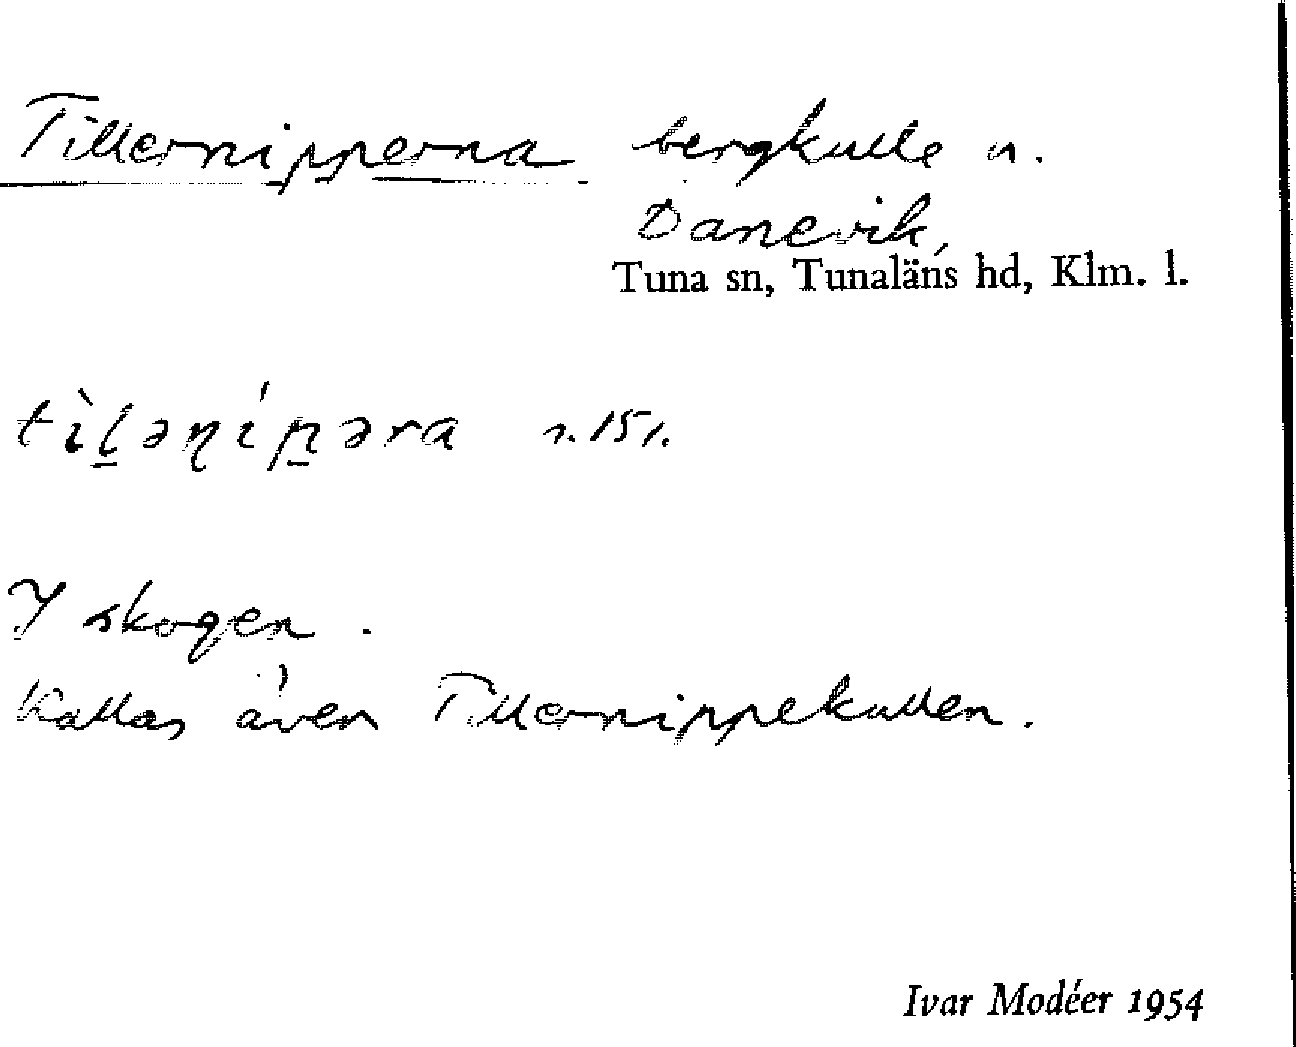 Tillernipperna bergkulle n.
Danevik,
Tuna sn, Tunaläns hd, Klm. l.
tìl̠əɳíp̠əra s. 151.
I skogen.
Kallas även Tillernippekullen.
Ivar Modéer 1954